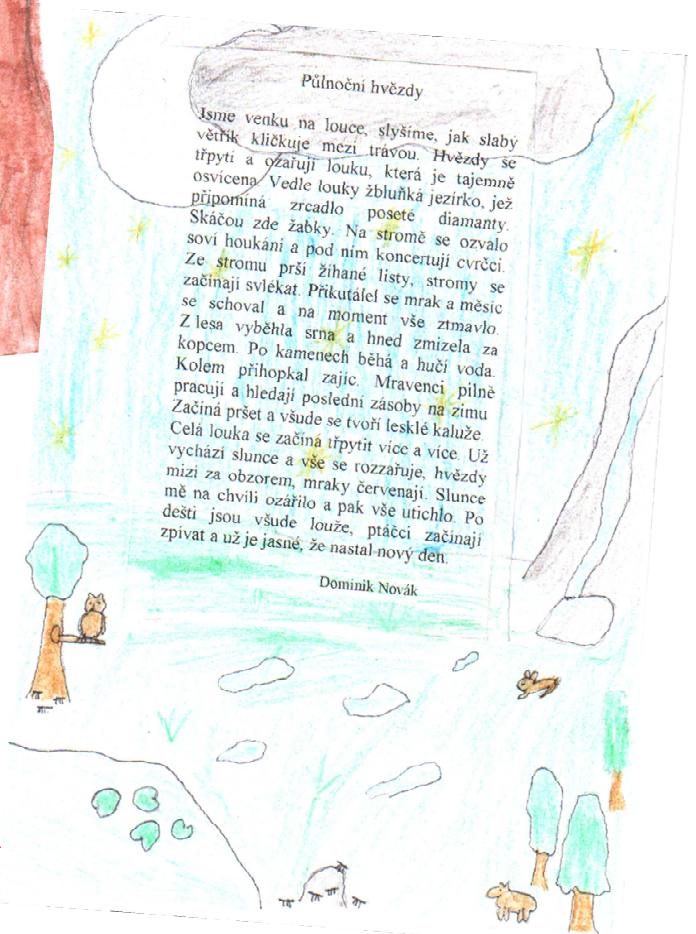 Půlnoční hvězdy
Jsme venku na louce, slyšíme, jak slabý
větřík kličkuje mezi trávou. Hvězdy se
třpytí a ozařují louku, která je tajemně
osvícena. Vedle louky žbluňká jezírko, jež
připomíná zrcadlo poseté diamanty.
Skáčou zde žabky. Na stromě se ozvalo
soví houkání a pod ním koncertují cvrčci.
Ze stromu prší žíhané listy, stromy se
začínají svlékat. Přikutálel se mrak a měsíc
se schoval a na moment vše ztmavlo.
Z lesa vyběhla srna a hned zmizela za
kopcem. Po kamenech běhá a hučí voda.
Kolem přihopkal zajíc. Mravenci pilně
pracují a hledají poslední zásoby na zimu
Začíná pršet a všude se tvoří lesklé kaluže.
Celá louka se začíná třpytit více a více. Už
vychází slunce a vše se rozzařuje, hvězdy
mizí za obzorem, mraky červenají. Slunce
mě na chvíli ozářilo a pak vše utichlo. Po
dešti jsou všude louže, ptáčci začínají
zpívat a už je jasné, že nastal nový den.
Dominik Novák